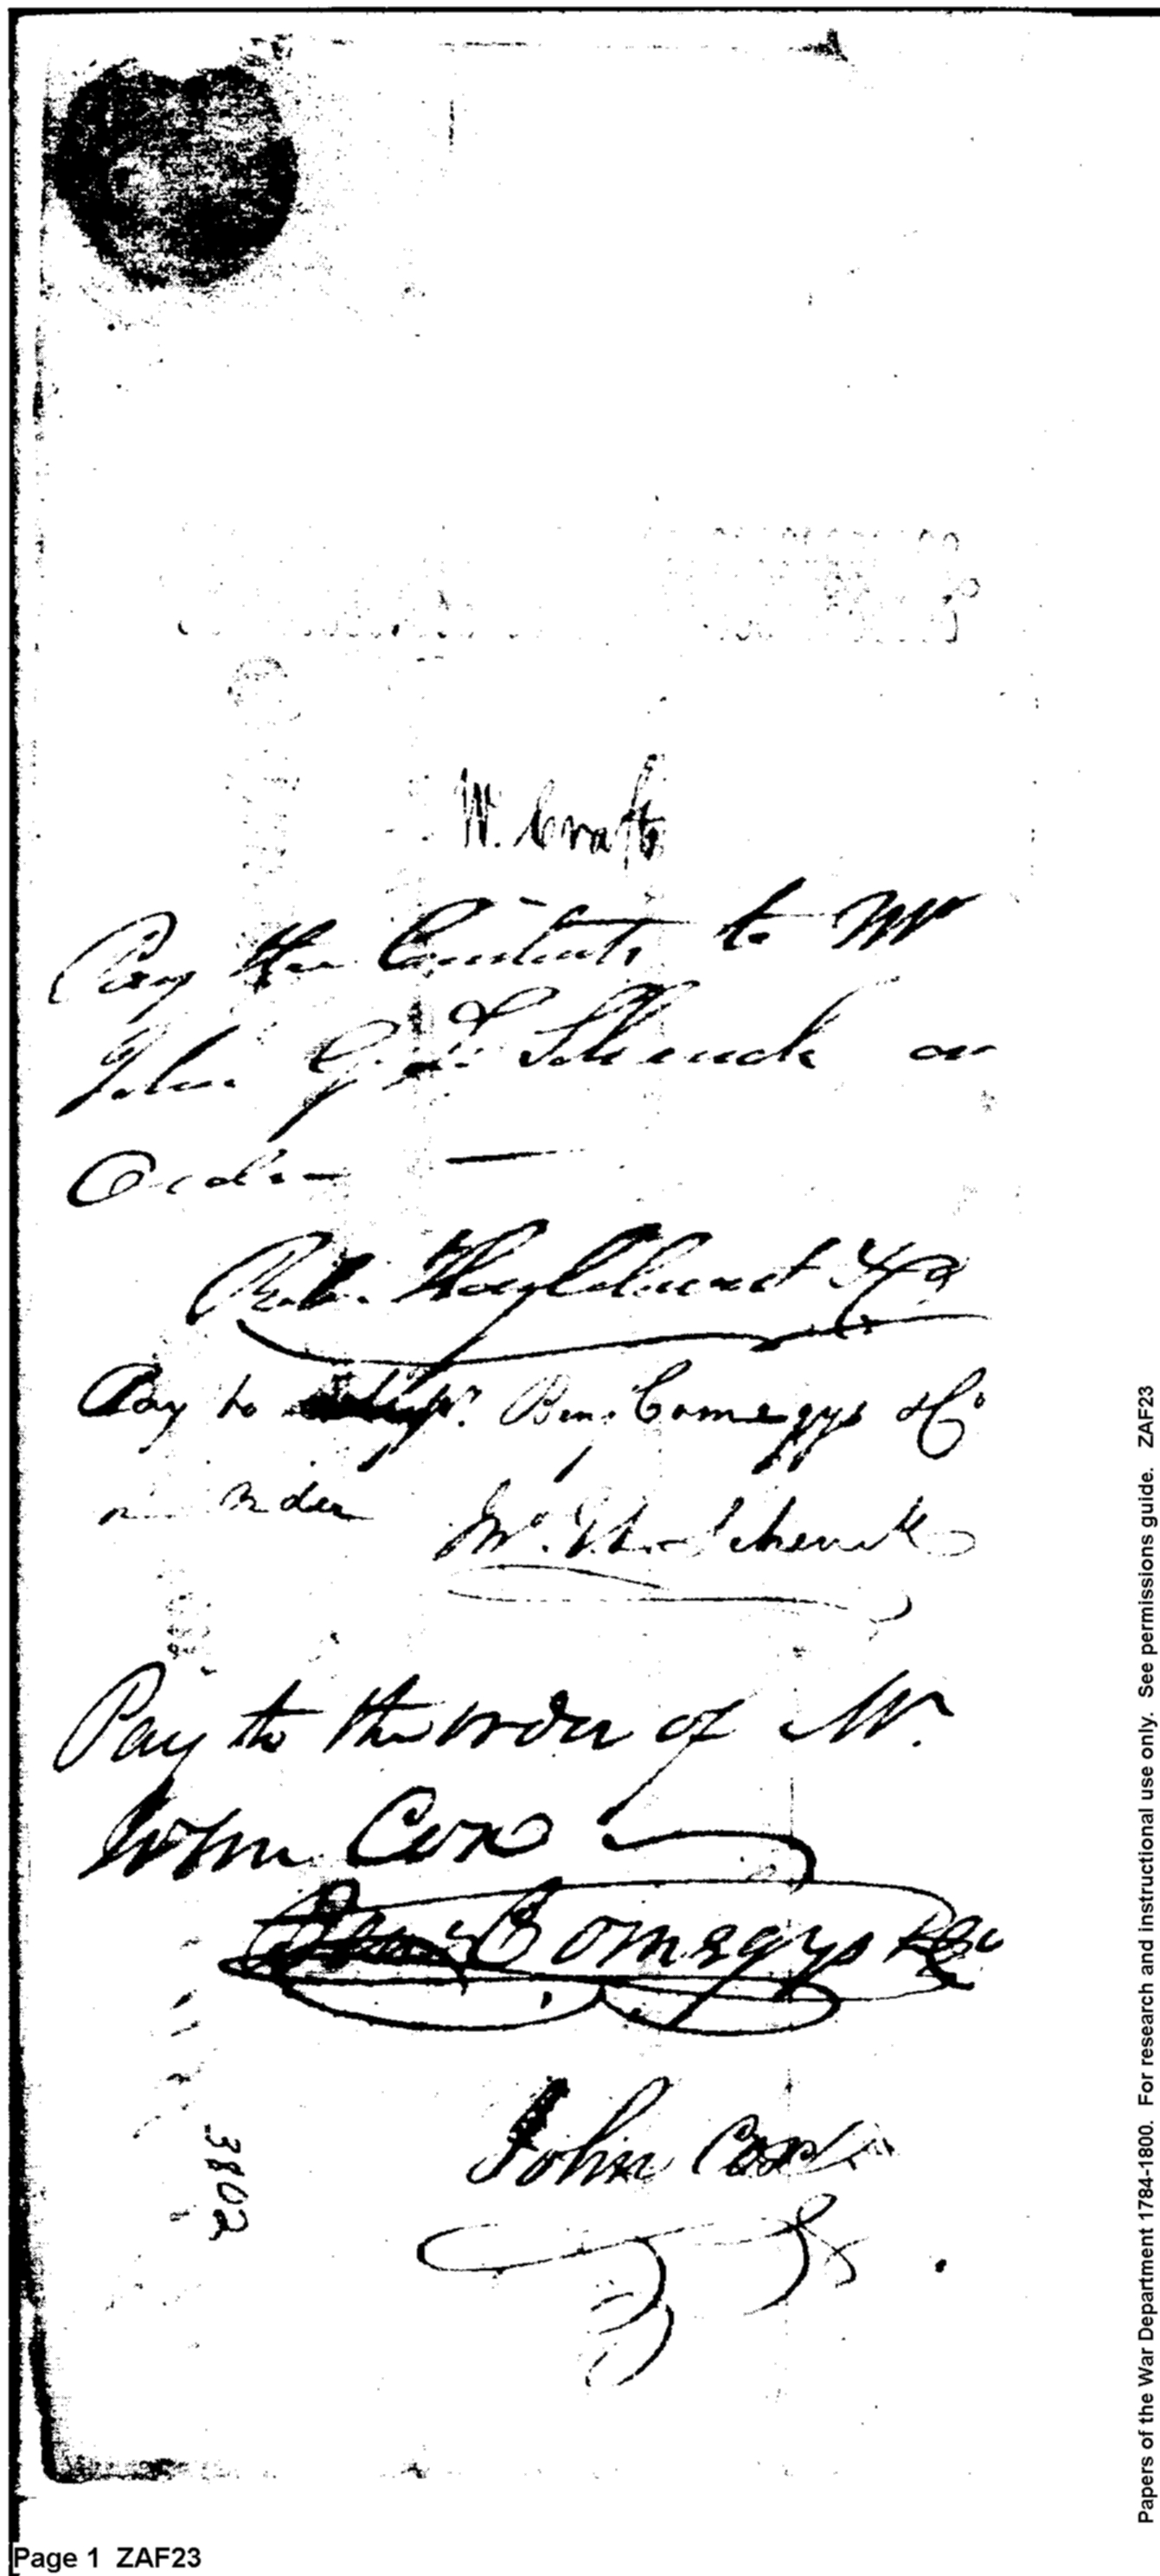 W. Crafts
Pay the Contents to Mr
John G. Schenck or
Order —
Rob. Hazlehurst & Co
Pay to Benj Comegys & Co
or order
Schenck
Pay to the order of Mr.
John Cox
Benj Comegys & Co
John Cox
3802
Page 1 ZAF23
Papers of the War Department 1784-1800. For research and instructional use only. See permissions guide. ZAF23